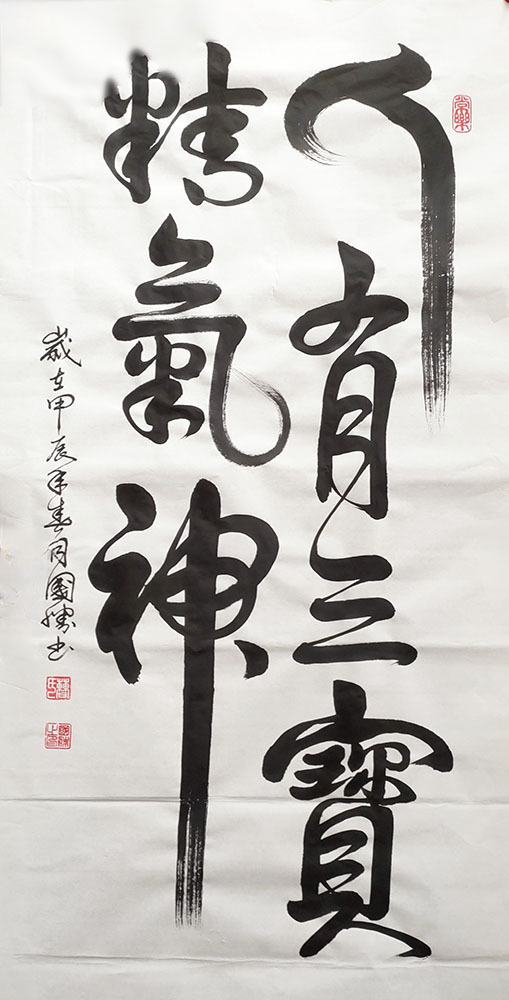 人有三寶
精氣神
歲在甲辰年春月國勝书